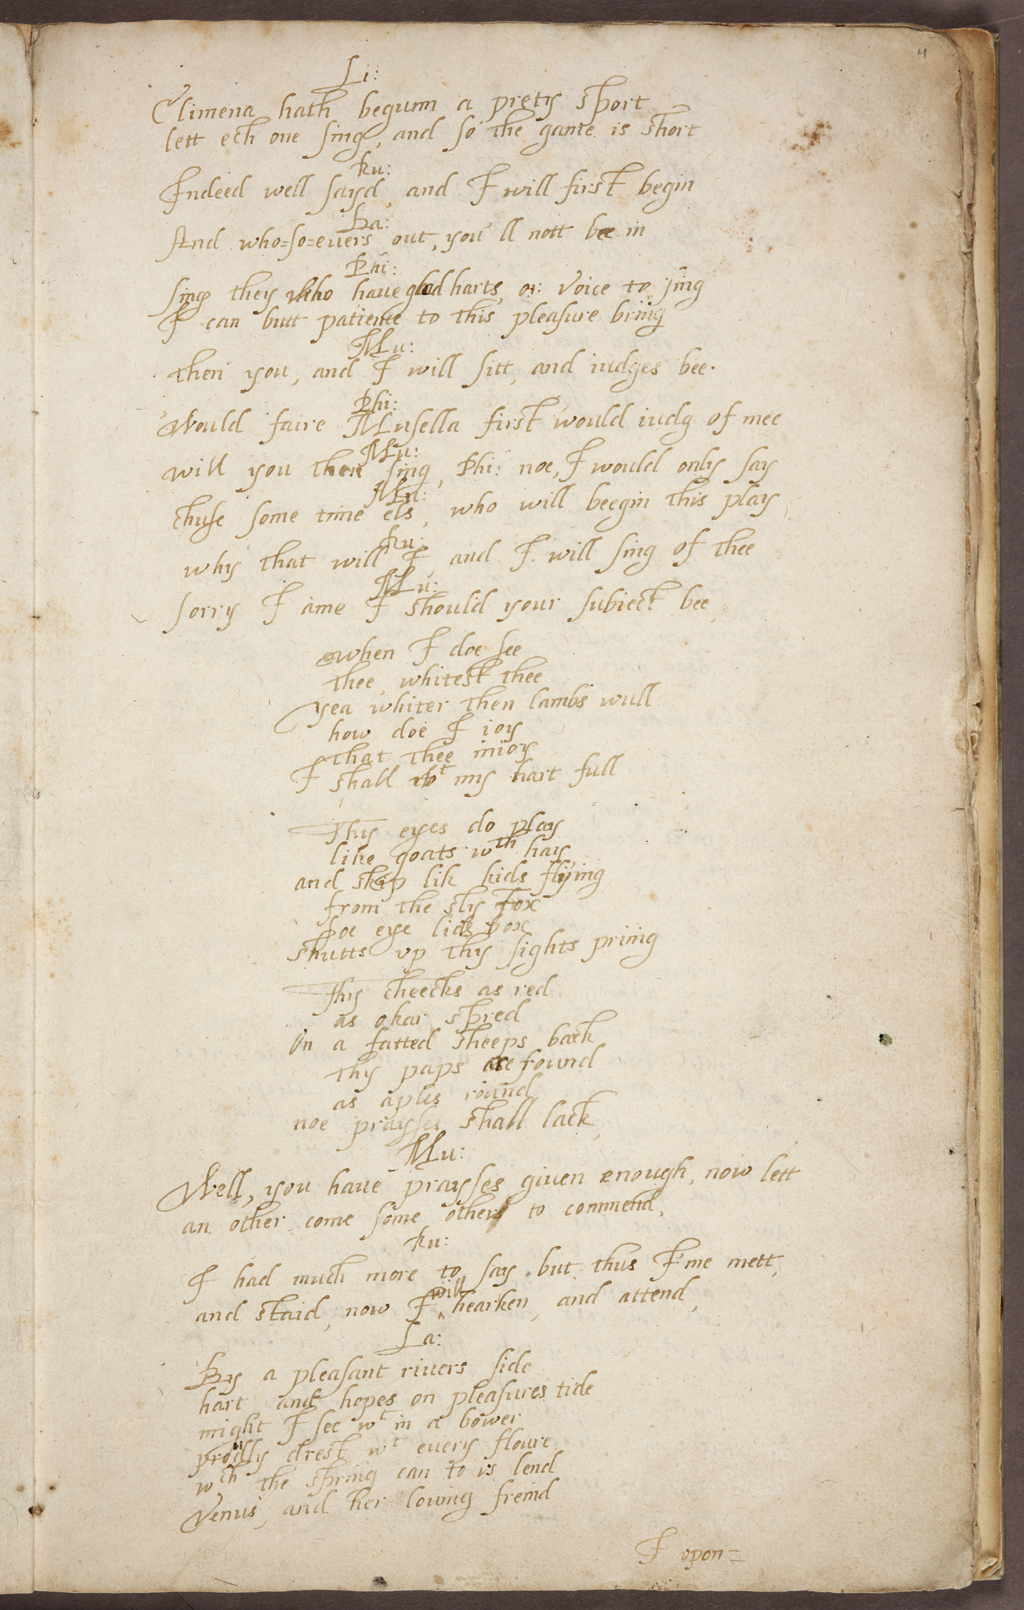 4
Li:
Climena hath begunn a prety sport
lett ech one sing, and so the game is short
Ru:
Indeed well sayd, and I will first begin
La:
And who=so=euers out, you'll nott bee in
Phi:
sing they who haue glad harts, or voice to sing
I can butt patience to this pleasure bring
Mu:
then you, and I will sitt, and iudges bee.
Phi:
Would faire Musella first would iudg of mee
Mu:
will you then sing, Phi: noe, I would only say
Mu:
chuse some time els, who will beegin this play
Ru:
why that will I, and I will sing of thee
Mu:
sorry I ame I should your subiect bee,
when I doe see
thee, whitest thee
yea whiter then lambs wull
how doe I ioy
that thee inioy
I shall wt my hart full
Thy eyes do play
like goats wth hay
and skip lik kids flying
from the sly fox
soe eye lids box
shutts up thy sights priing
Thy cheecks as red
as okar spred
On a fatted sheeps back
thy paps are found
as aples round
noe prayses shall lack,
Mu:
Well, you haue prayses giuen enough, now lett
an other come some other to commend,
Ru:
I had much more to say but thus I'me mett,
will
and staid, now I ^ hearken, and attend,
La:
By a pleasant riuers side
hart and hopes on pleasures tide
might I see wt in a bower
proudly drest wt euery floure
wch the spring can to us lend
Venus, and her louing freind
I upon=